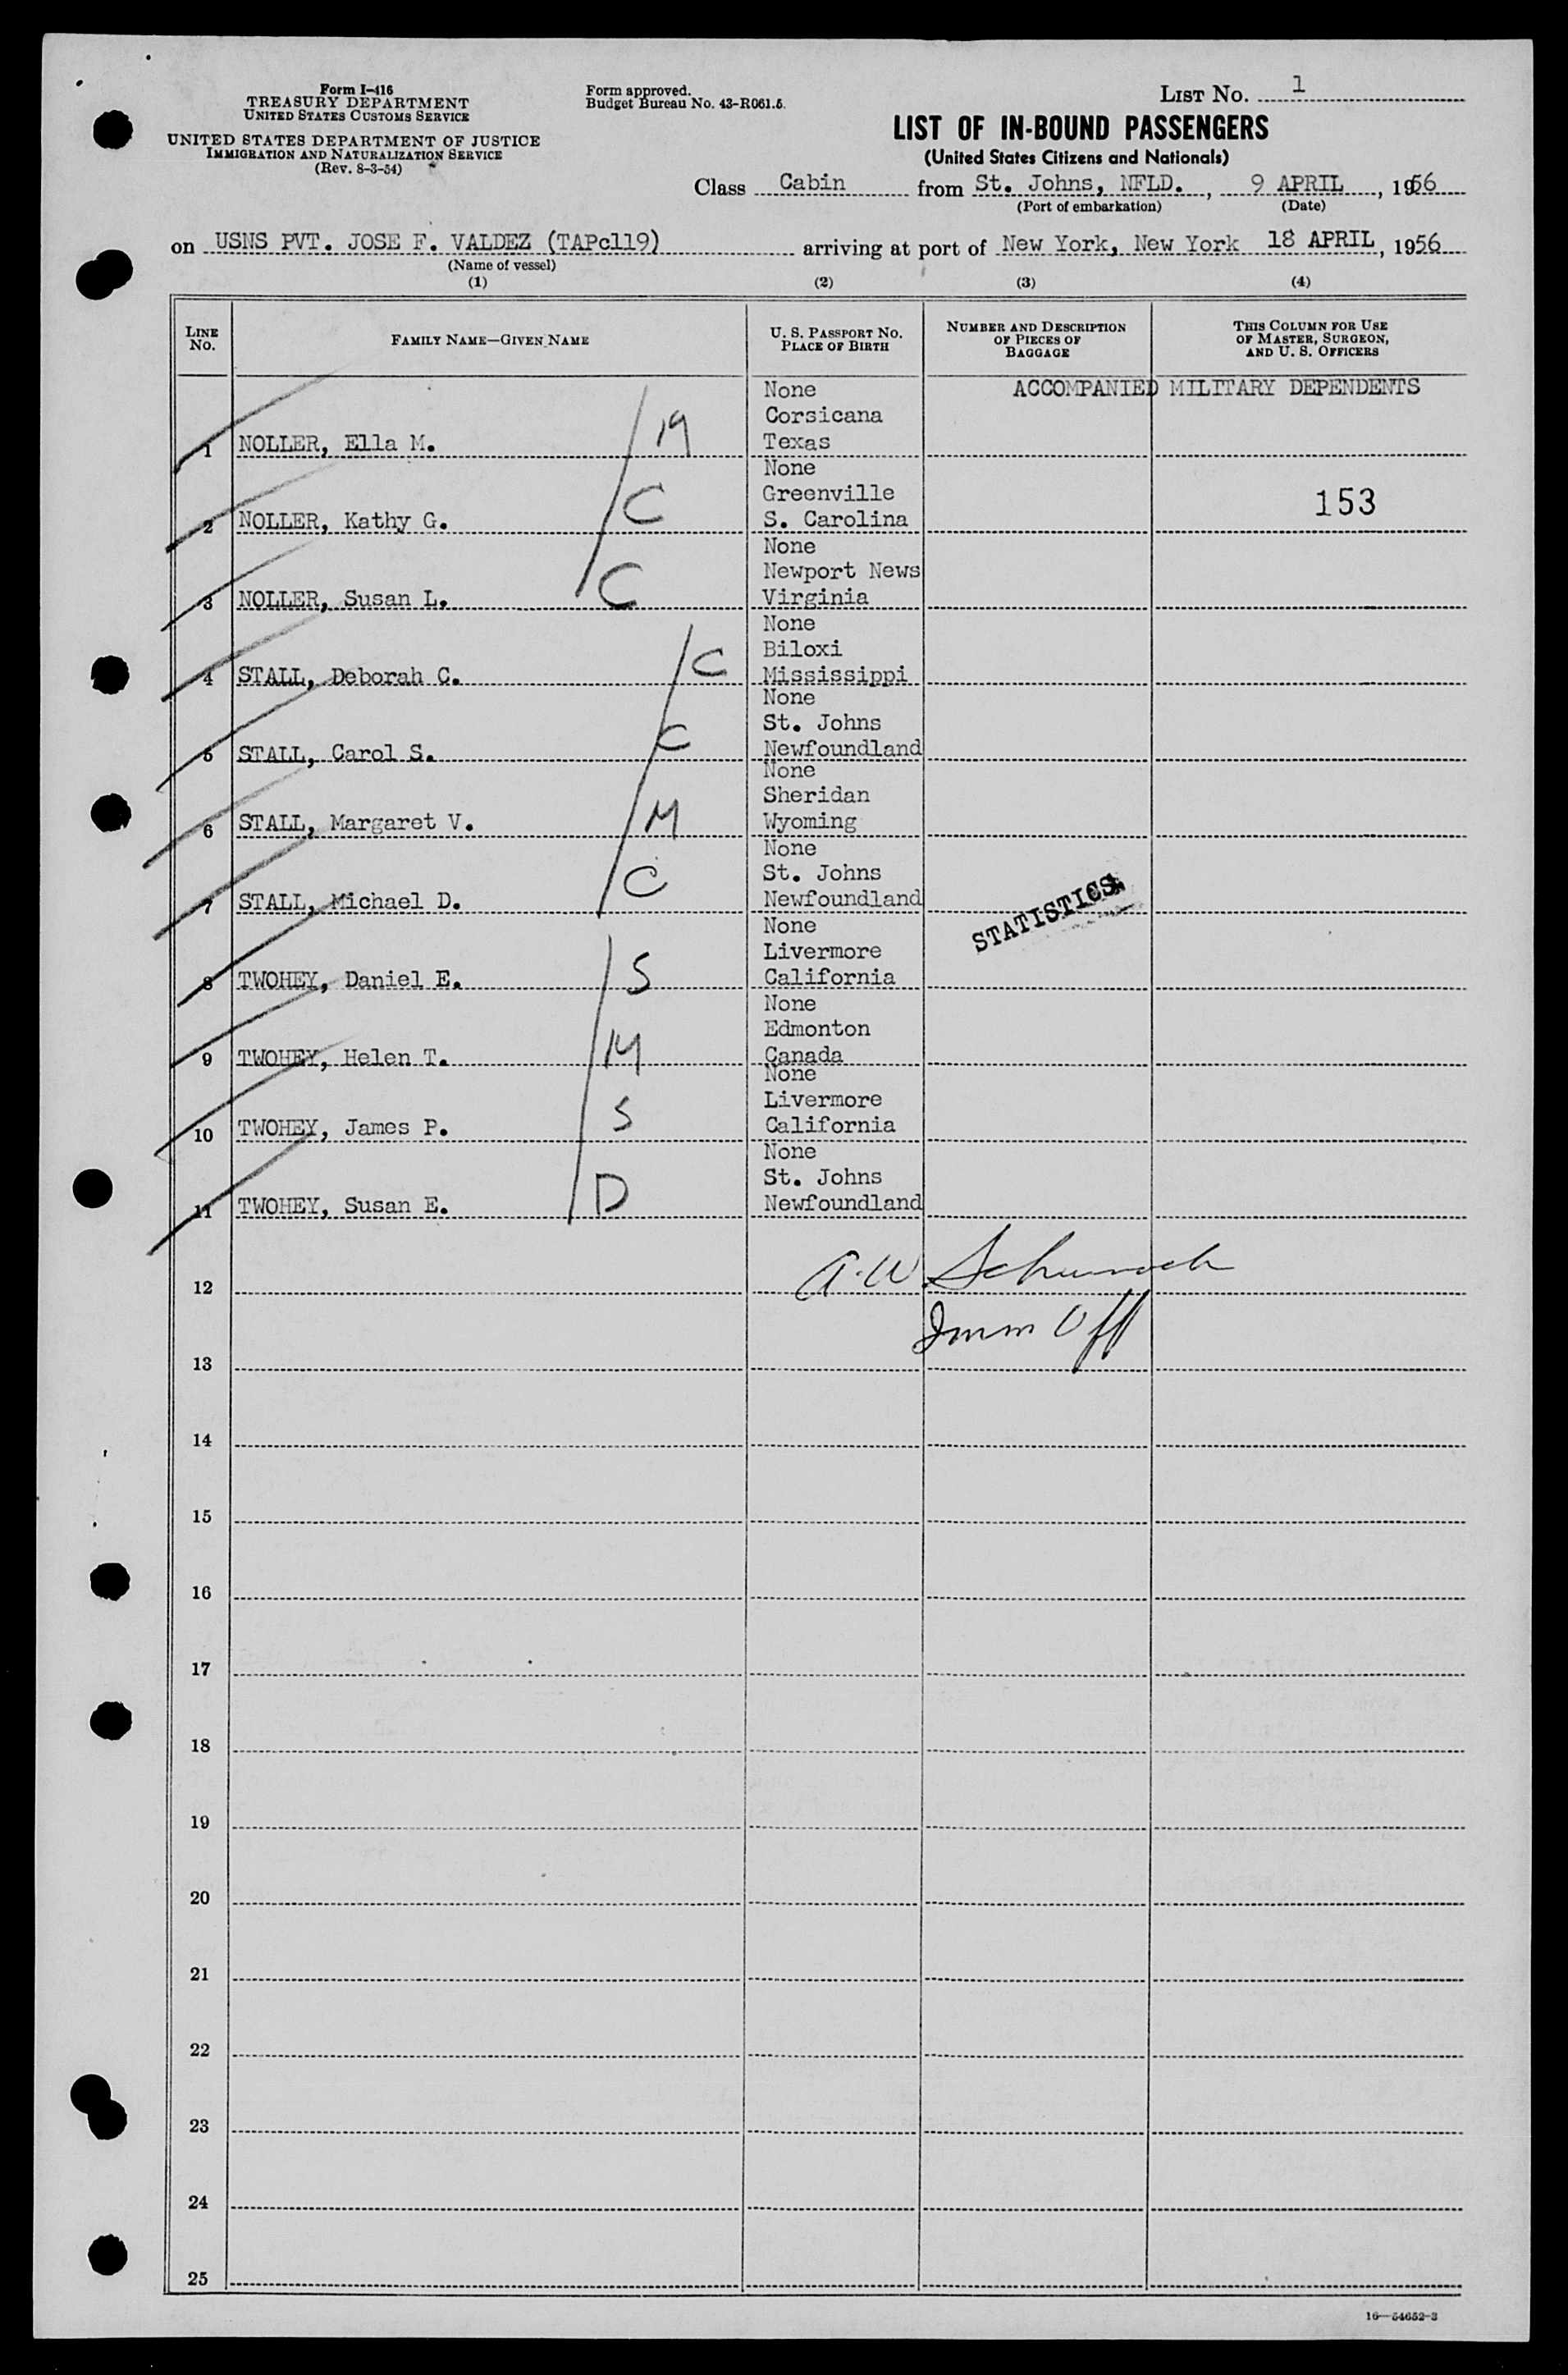 Form I-416
TREASURY DEPARTMENT
UNITED STATES CUSTOMS SERVICE
UNITED STATES DEPARTMENT OF JUSTICE
IMMIGRATION AND NATURALIZATION SERVICE
(Rev. 8-3-54)
Form approved.
Budget Bureau No. 43-R061.5.
LIST No. 1
LIST OF IN-BOUND PASSENGERS
(United States Citizens and Nationals)
Class Cabin from St. Johns, NFLD., 9 APRIL, 1956
(Port of embarkation) (Date)
on USNS PVT. JOSE F. VALDEZ (TAPc119) arriving at port of New York, New York 18 APRIL, 1956
(Name of vessel)
(1) (2) (3) (4)
LINE No.
FAMILY NAME—GIVEN NAME
U. S. PASSPORT No.
PLACE OF BIRTH
NUMBER AND DESCRIPTION
OF PIECES OF
BAGGAGE
THIS COLUMN FOR USE
OF MASTER, SURGEON,
AND U. S. OFFICERS
None ACCOMPANIED MILITARY DEPENDENTS
Corsicana
1 NOLLER, Ella M. M Texas
None
Greenville 153
2 NOLLER, Kathy G. C S. Carolina
None
Newport News
3 NOLLER, Susan L. C Virginia
None
Biloxi
4 STALL, Deborah C. C Mississippi
None
St. Johns
5 STALL, Carol S. C Newfoundland
None
Sheridan
6 STALL, Margaret V. M Wyoming
None
St. Johns
7 STALL, Michael D. C Newfoundland
STATISTICS
None
Livermore
8 TWOHEY, Daniel E. S California
None
Edmonton
9 TWOHEY, Helen T. M Canada
None
Livermore
10 TWOHEY, James P. S California
None
St. Johns
11 TWOHEY, Susan E. D Newfoundland
12 A. W.
Imm Off
13
14
15
16
17
18
19
20
21
22
23
24
25
16—54652-3